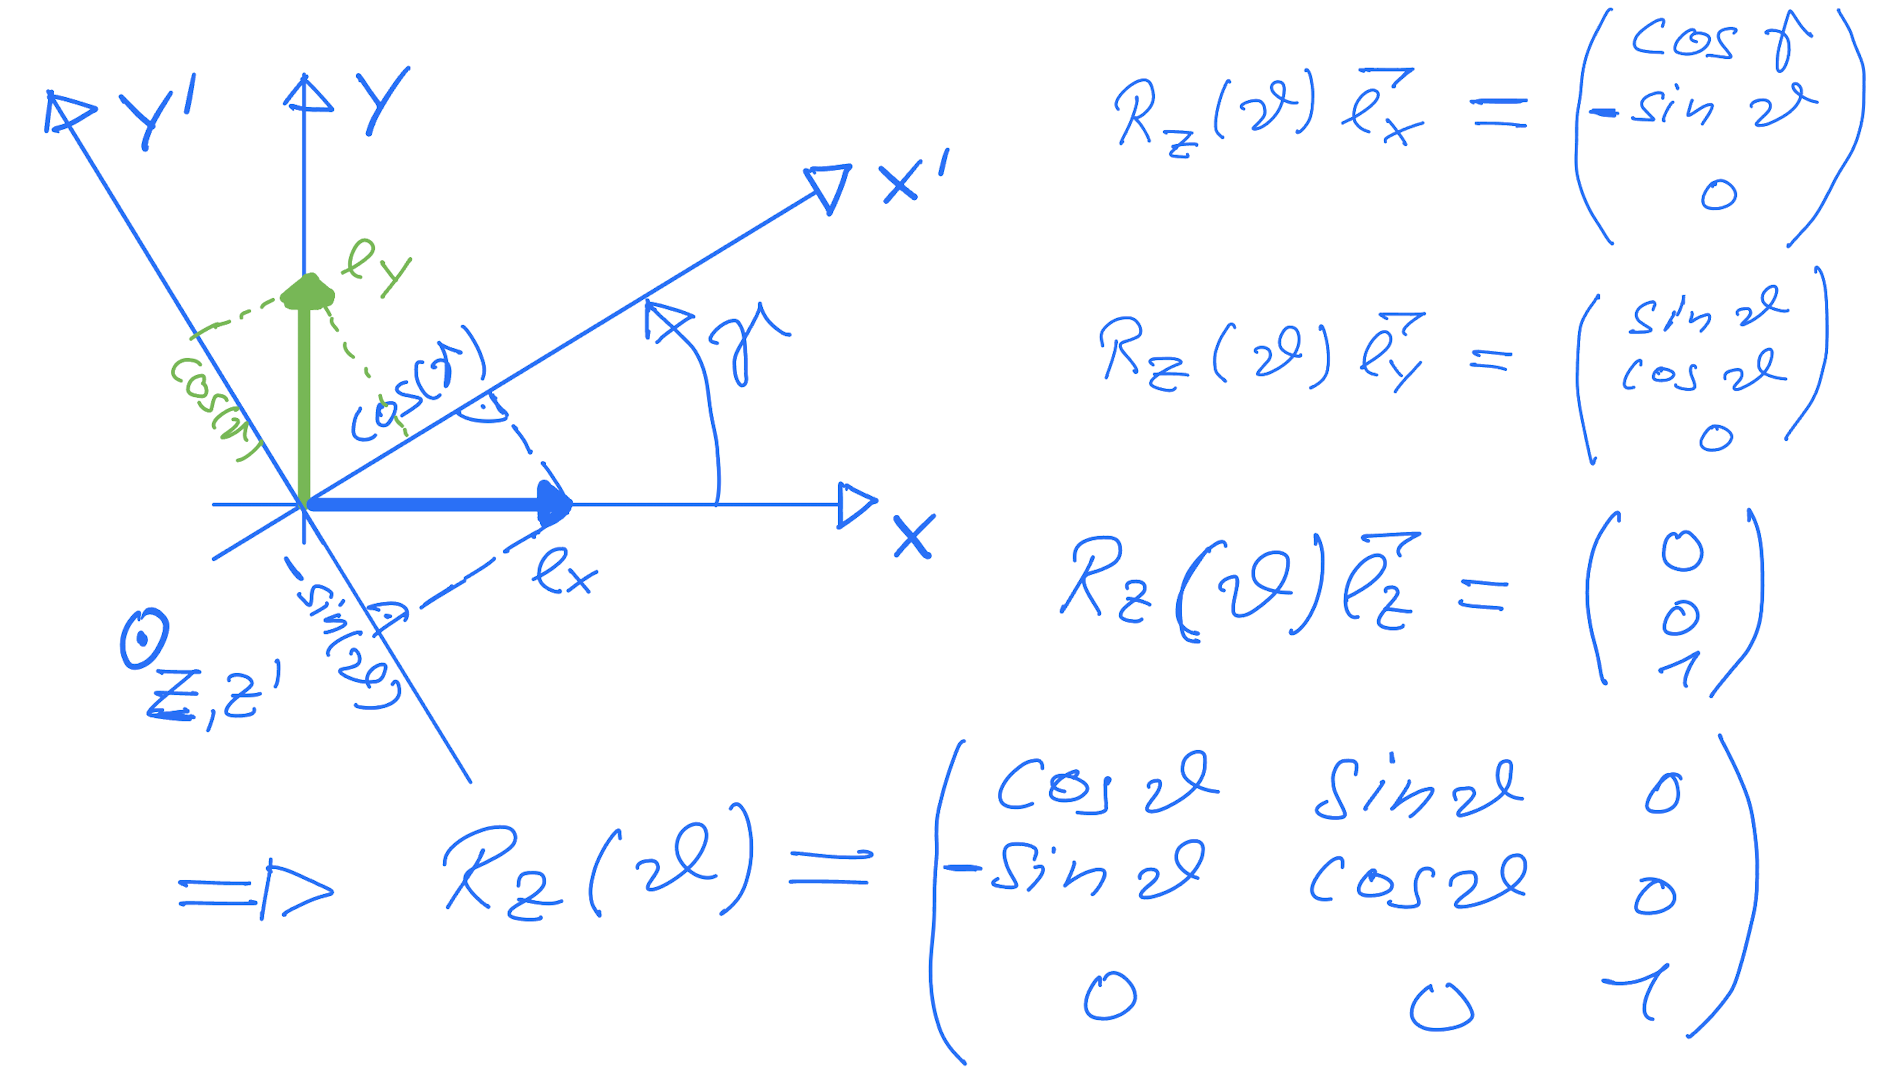 Y'
Y
X'
ey
cos(ϑ)
cos(γ)
γ
X
ex
-sin(ϑ)
Z,Z'
Rz(ϑ) e⃗x = ( cos γ
-sin ϑ
0 )
Rz(ϑ) e⃗y = ( sin ϑ
cos ϑ
0 )
Rz(ϑ) e⃗z = ( 0
0
1 )
⇒ Rz(ϑ) = ( cos ϑ sin ϑ 0
-sin ϑ cos ϑ 0
0 0 1 )